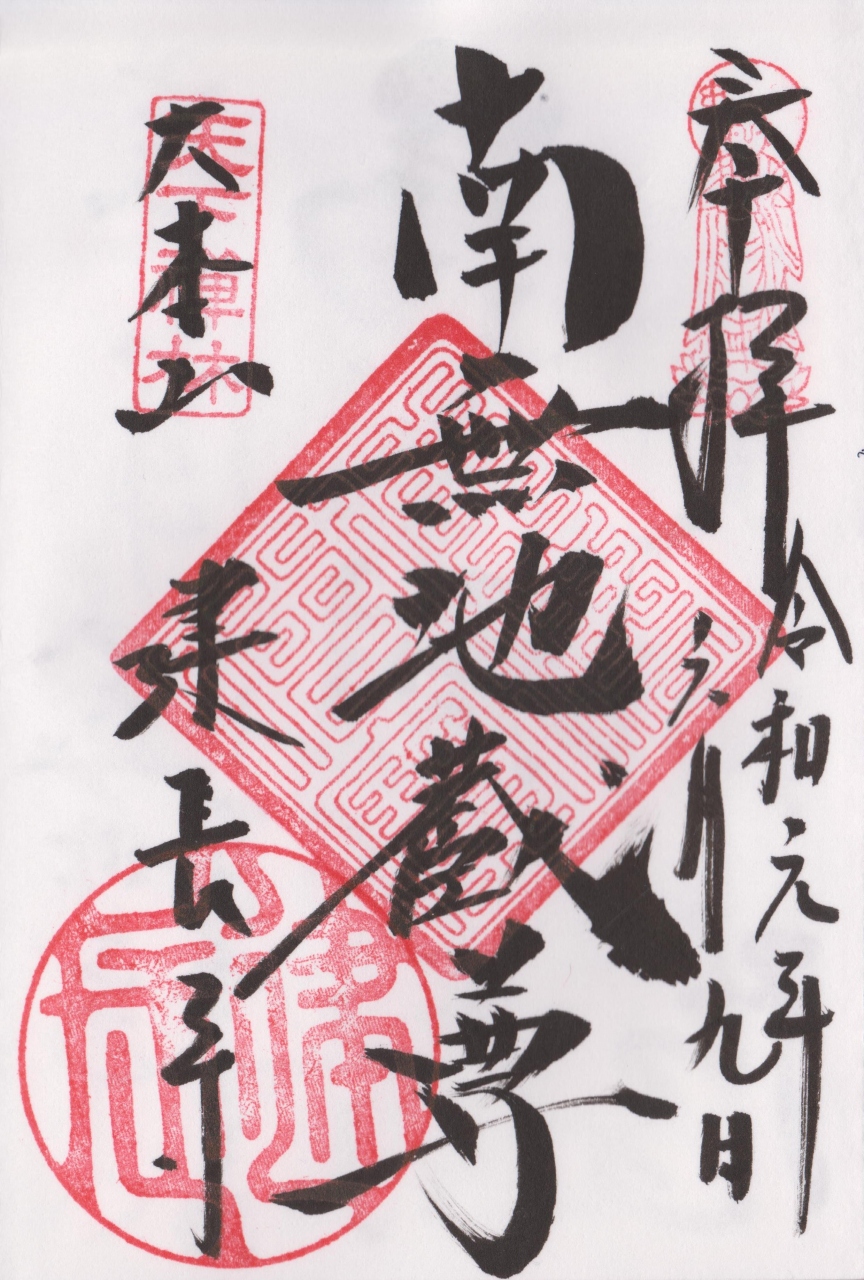 奉拝
令和元年
六月九日
南無地蔵尊
天下禅林
大本山
建長寺